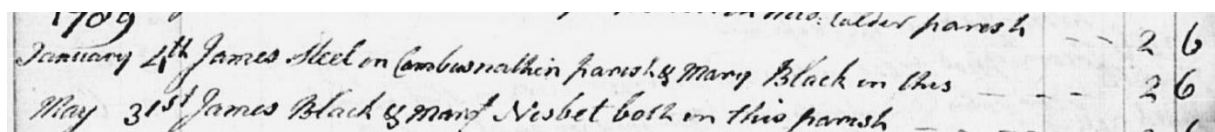 1789 in mid: Calder parish -- 2 6
January 4th James Steel in Cambusnathin parish & Mary Black in this ---- 2 6
May 31st James Black & Marg Nisbet both in this parish